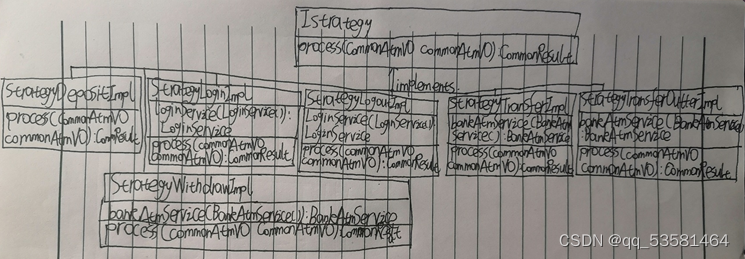 Istrategy
process(CommonAtmVO commonAtmVO):CommonResult
implements
StrategyDepositImpl
process(CommonAtmVO
commonAtmVO):CommResult
StrategyLoginImpl
loginService(LoginService()):
LoginService
process(commonAtmVO
commonAtmVO):CommonResult
StrategyLogoutImpl
LoginService(LoginService()):
LoginService
process(commonAtmVO
commonAtmVO):CommonResult
StrategyTransferImpl
bankAtmService(BankAtm
Service()):BankAtmService
process(commonAtmVO
commonAtmVO):commonResult
StrategyTransferOutterImpl
bankAtmService(BankAtmService)
:bankAtmService
process(CommonAtmVO
commonAtmVO):CommonResult
StrategyWithdrawImpl
bankAtmService(BankAtmService()):BankAtmService
process(commonAtmVO CommonAtmVO):CommonResult
CSDN @qq_53581464